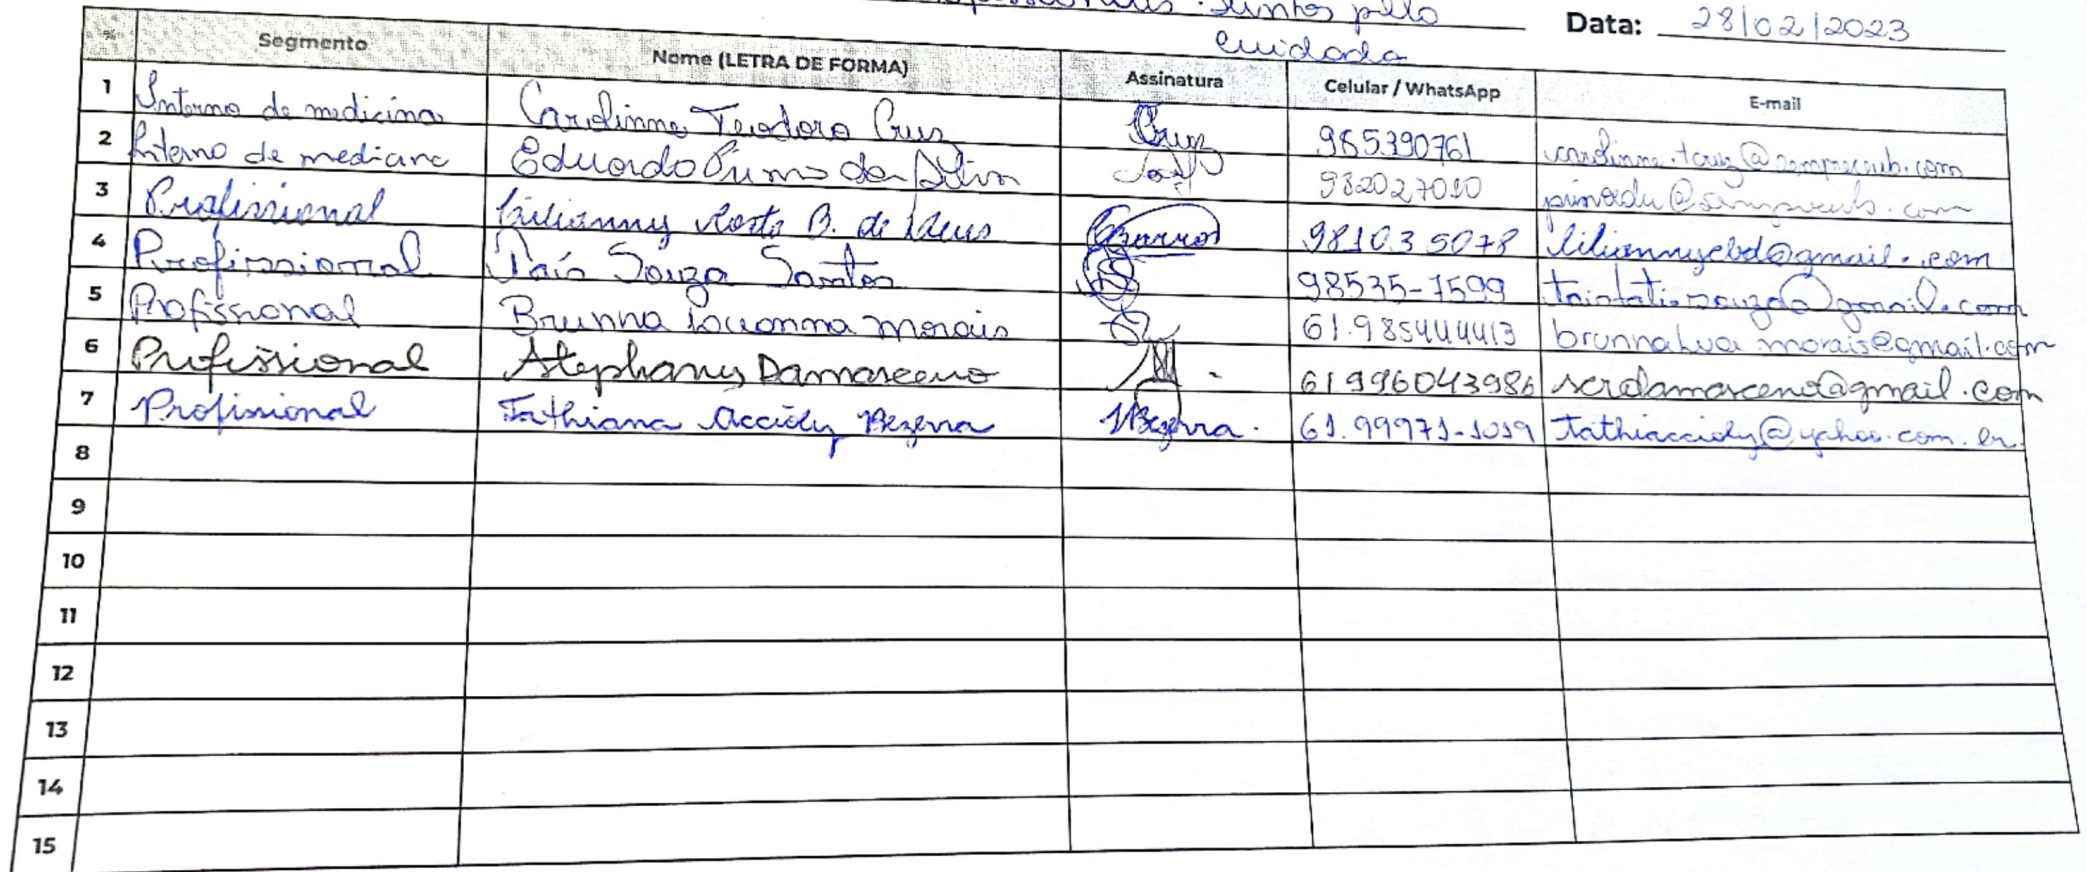 Juntos pelo
cuidado
Data: 28/02/2023
% Segmento Nome (LETRA DE FORMA) Assinatura Celular / WhatsApp E-mail
1 Interno de medicina Carolinne Teodoro Cruz Cruz 985390761
2 Interno de medicina Eduardo Primo da Silva 982027010
3 Profissional Lilianny B. de Deus Barros 98103 5078 liliannycbd@gmail.com
4 Profissional Taís Souza Santos 98535-7599
5 Profissional Brunna Luanna Morais 61.985444413 brunnalua.morais@gmail.com
6 Profissional Stephany Damasceno 61996043986 scrdamasceno@gmail.com
7 Profissional Tathiana Accioly Bezerra Bezerra. 61.99971-1019 tathiaccioly@yahoo.com.br
8
9
10
11
12
13
14
15